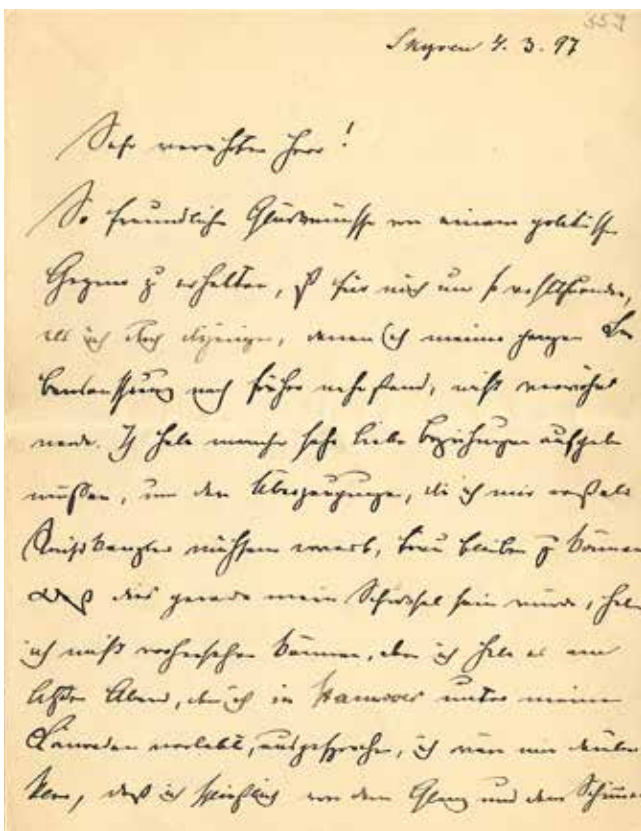 Skyren 4. 3. 97
Sehr verehrter Herr!
So freundliche Glückwünsche von einem politischen
Gegner zu erhalten, ist für mich um so wohlthuender,
als ich durch diejenigen, denen ich meiner ganzen Le
bensauffassung nach früher nahe stand, nicht verwöhnt
werde. Ich habe manche sehr liebe Beziehungen aufgeben
müssen, um den Überzeugungen, die ich mir erst als
Reichskanzler mühsam erwarb, treu bleiben zu können
Daß dies gerade mein Schicksal sein würde, habe
ich nicht vorhersehen können, aber ich habe es am
letzten Abend, den ich in Hannover unter meinen
Kameraden verlebt, ausgesprochen, ich wäre mir darüber
klar, daß ich von dem Glanz und dem Schimmer